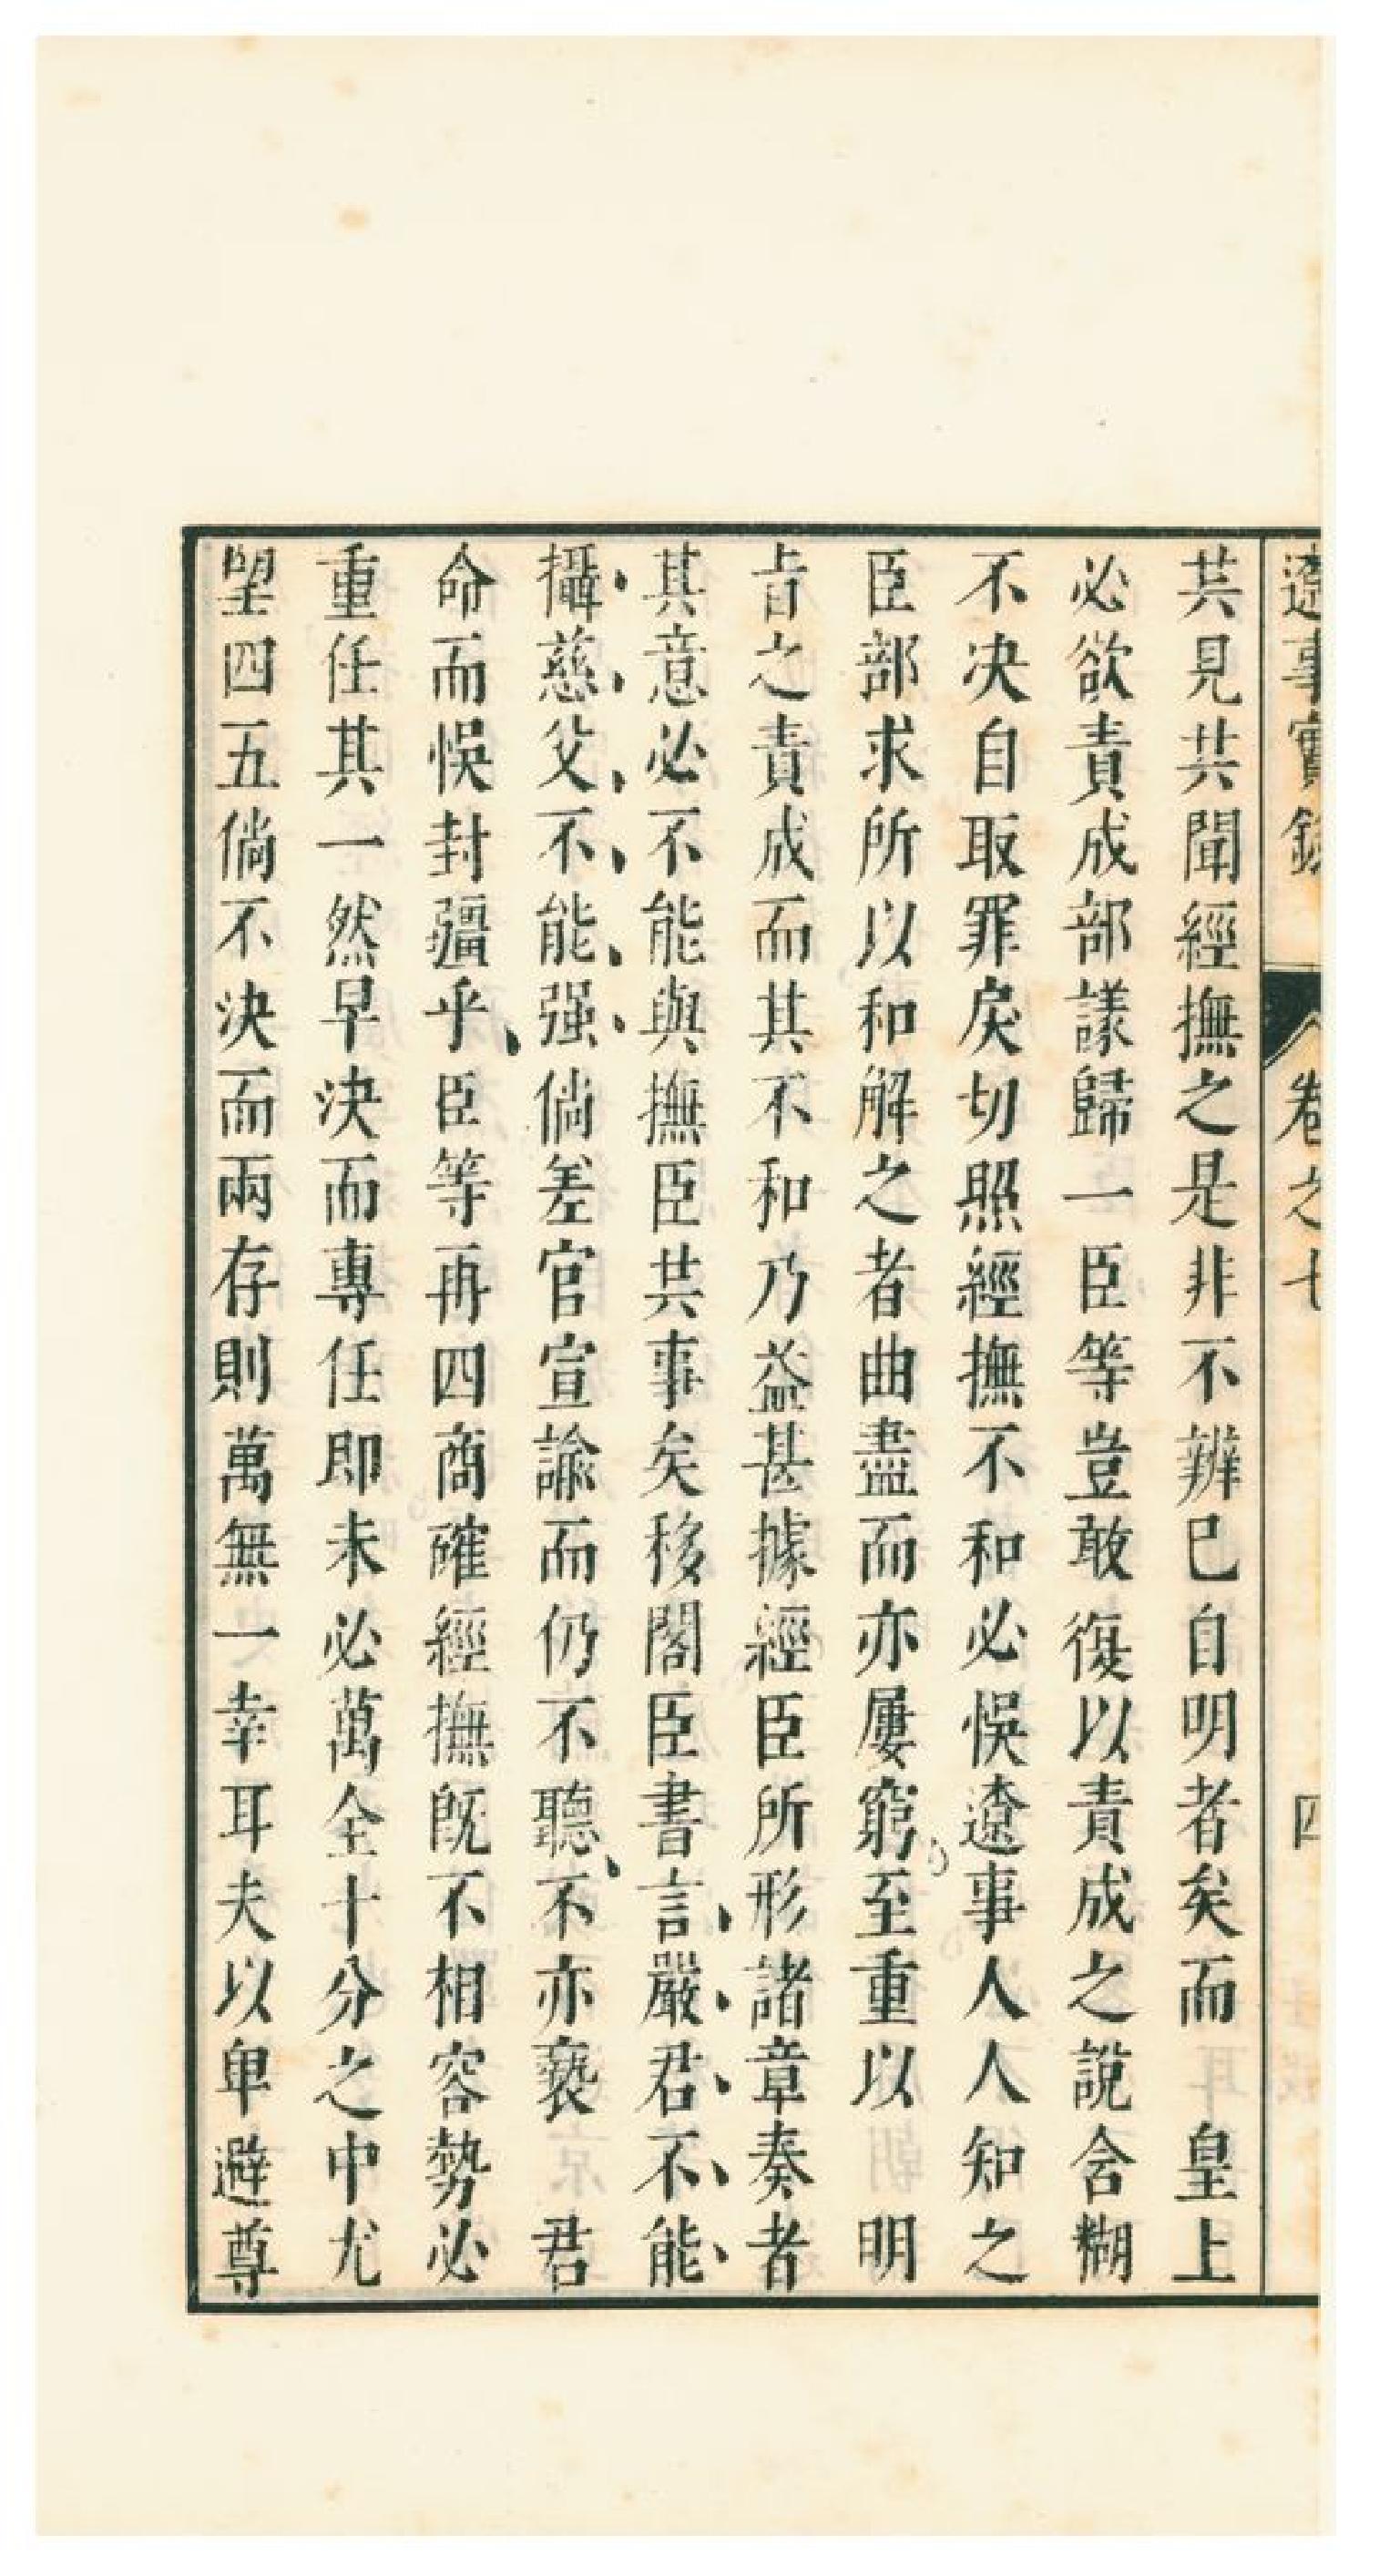 遼事實錄 卷之七 四
共見共聞經撫之是非不辨巳自明者矣而 皇上
必欲責成部議歸一臣等豈敢復以責成之說含糊
不决自取罪戾切照經撫不和必悞遼事人人知之
臣部求所以和解之者曲盡而亦屢窮至重以 明
旨之責成而其不和乃益甚據經臣所形諸章奏者
其意必不能與撫臣共事矣移閣臣書言嚴君不能
攝慈父不能强倘差官宣諭而仍不聽不亦褻 君
命而悞封疆乎臣等再四商確經撫旣不相容勢必
重任其一然早決而專任即未必萬全十分之中尤
望四五倘不決而兩存則萬無一幸耳夫以卑避尊